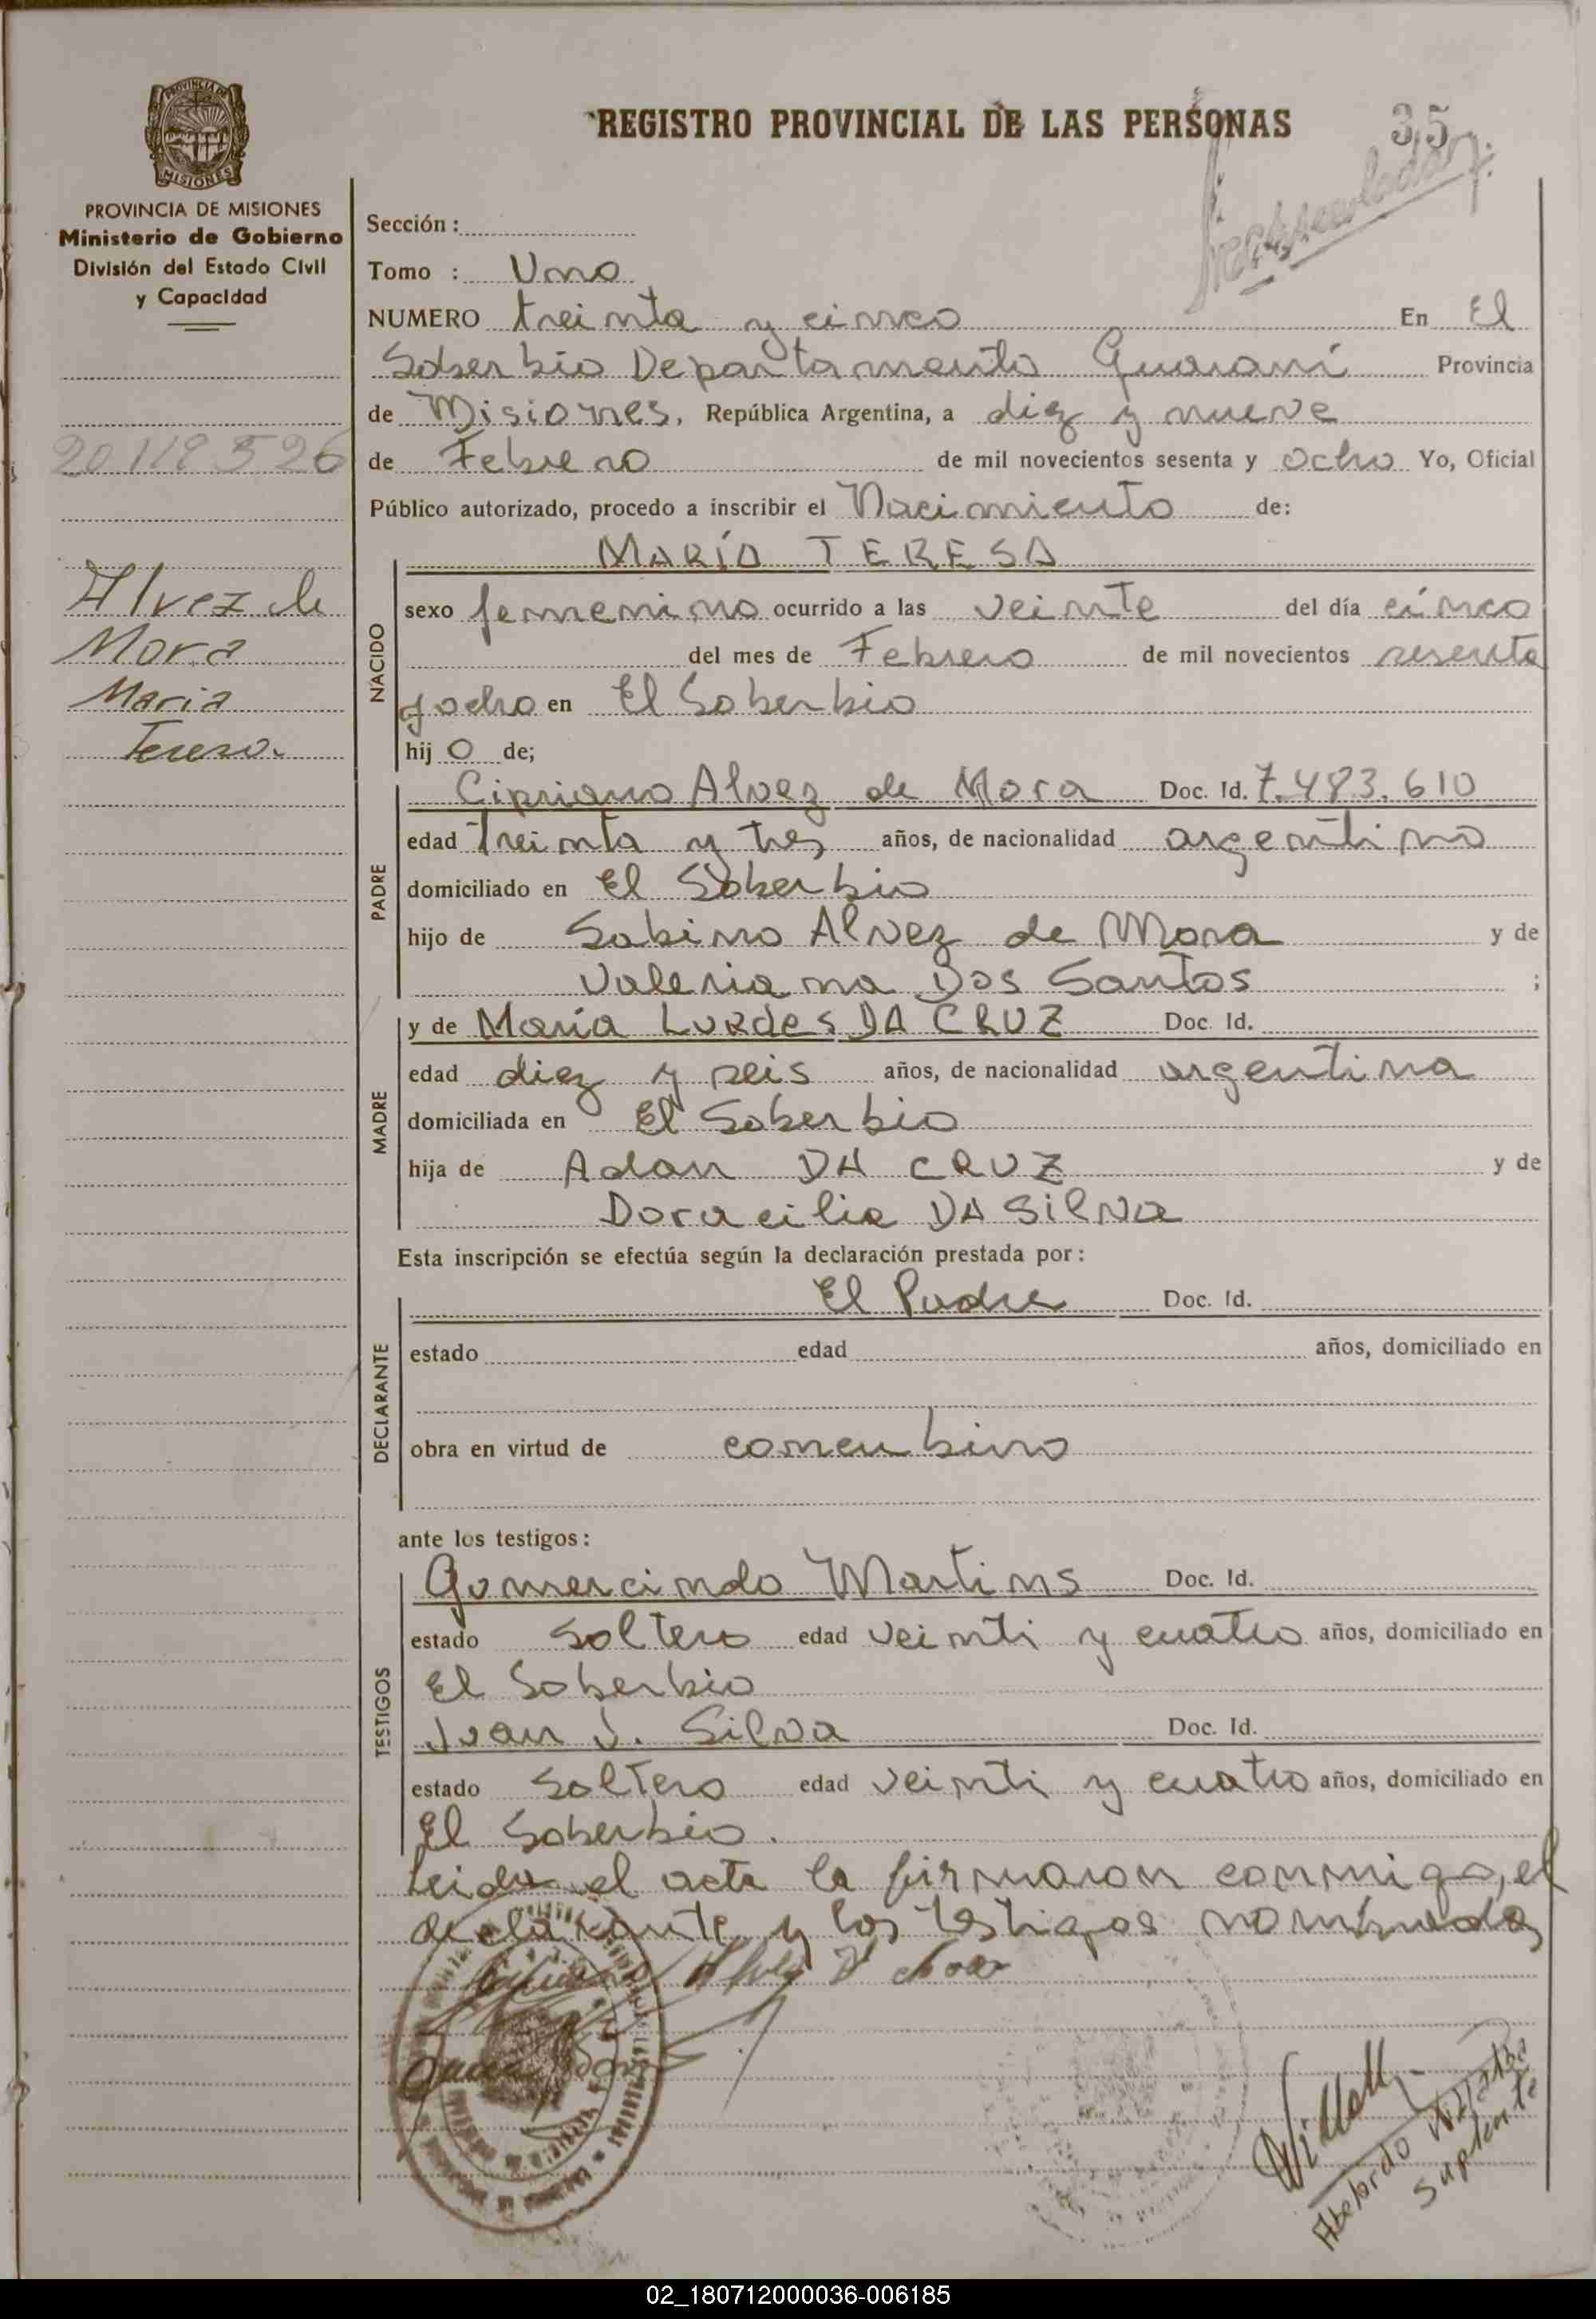 REGISTRO PROVINCIAL DE LAS PERSONAS
35
PROVINCIA DE MISIONES
MISIONES
PROVINCIA DE MISIONES
Ministerio de Gobierno
División del Estado Civil
y Capacidad
20.119.526
Alvez de
Mora
Maria
Teresa.
Sección :
Tomo : Uno
NUMERO treinta y cinco En El
Soberbio Departamento Guaraní Provincia
de Misiones, República Argentina, a diez y nueve
de Febrero de mil novecientos sesenta y ocho Yo, Oficial
Público autorizado, procedo a inscribir el Nacimiento de:
NACIDO
MARÍA TERESA
sexo femenino ocurrido a las veinte del día cinco
del mes de Febrero de mil novecientos sesenta
y ocho en El Soberbio
hij o de;
PADRE
Cipriano Alvez de Mora Doc. Id. 7.483.610
edad treinta y tres años, de nacionalidad argentino
domiciliado en El Soberbio
hijo de Sabino Alvez de Mora y de
Valeriana Dos Santos ;
MADRE
y de María Lurdes DA CRUZ Doc. Id.
edad diez y seis años, de nacionalidad argentina
domiciliada en El Soberbio
hija de Adan DA CRUZ y de
Doracilia DA Silva
Esta inscripción se efectúa según la declaración prestada por:
DECLARANTE
El Padre Doc. Id.
estado edad años, domiciliado en
obra en virtud de concubino
ante los testigos:
TESTIGOS
Gomercindo Martins Doc. Id.
estado soltero edad veinti y cuatro años, domiciliado en
El Soberbio
Juan J. Silva Doc. Id.
estado soltero edad veinti y cuatro años, domiciliado en
El Soberbio.
Leida el acta la firmaron conmigo, el
declarante y los testigos nominados
Suplente
02_180712000036-006185